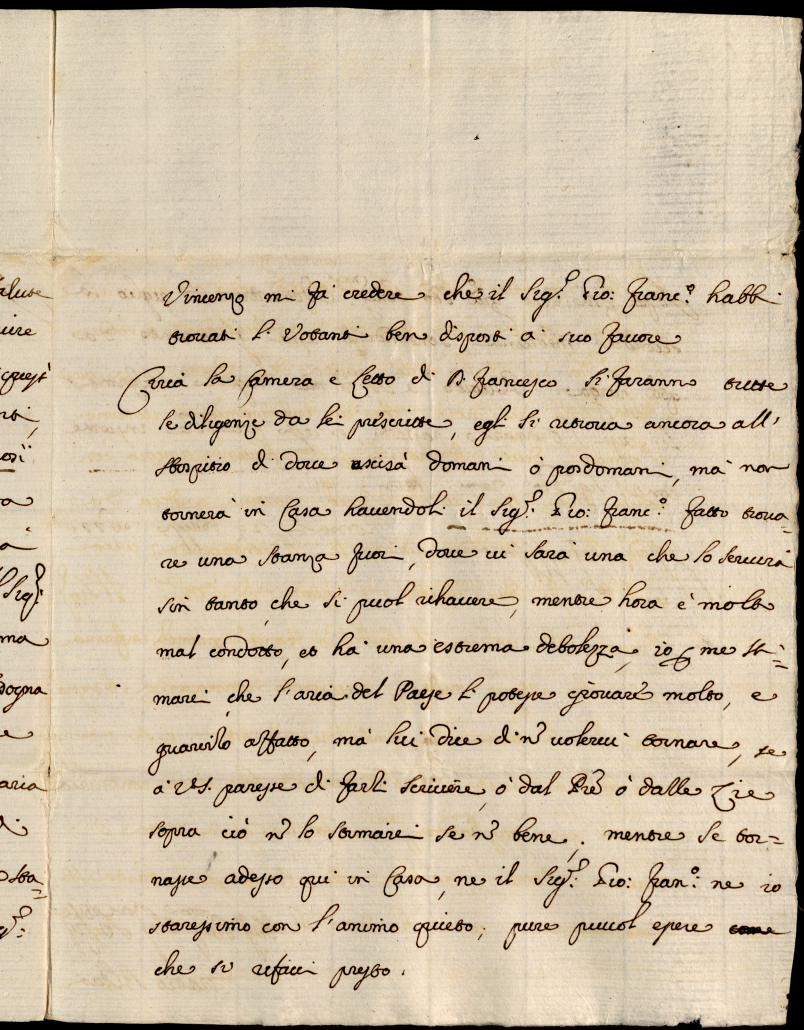 Vincenzo mi fà credere che il Sig.r Gio: Franc.o habbi
trovati li Votanti ben disposti à suo favore
Circa la Camera e Letto di D. Francesco si faranno tutte
le diligenze da lei prescritte, egli si ritrova ancora all'
Hospitio di dove uscirà domani ò posdomani, mà non
tornerà in Casa havendoli il Sig.r Gio: Franc.o fatto trova=
re una stanza fuori, dove vi sarà una che lo servirà
sin tanto, che si puol rihavere, mentre hora è molto
mal condotto, et hà una estrema debolezza, io per me sti=
marei, che l'aria del Paese li potesse giovare molto, e
guarirlo affatto, mà lui dice di nõ volervi tornare, se
à V.S. paresse di farli scrivere, ò dal Prẽ ò dalle Zie
sopra ciò nõ lo stimarei se nõ bene, mentre se tor=
nasse adesso qui in Casa, ne il Sig.r Gio: Fran.o ne io
staressimo con l'animo quieto; pure puol essere
che si rifacci presto.
aluse
uire
quest'
nti,
osi
ra
à
l Sig.r
ma
sogna
e
aria
di
sta=